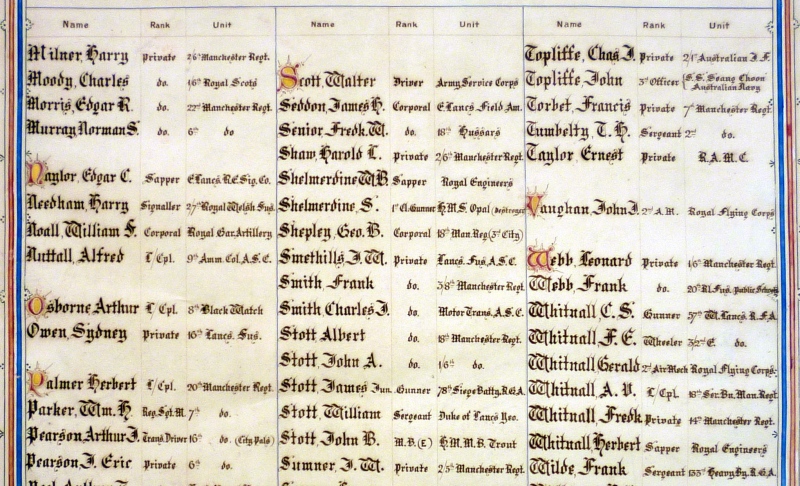 Name Rank Unit
Milner, Harry Private 2/6th Manchester Regt.
Moody, Charles do. 16th Royal Scots
Morris, Edgar R. do. 22nd Manchester Regt.
Murray, Norman S. do. 6th do
Naylor, Edgar C. Sapper E. Lancs. R.E. Sig. Co.
Needham Harry Signaller 2/7th Royal Welsh Fus.
Noall, William F. Corporal Royal Gar. Artillery
Nuttall, Alfred L/Cpl. 9th Amm. Col. A.S.C.
Osborne Arthur L/Cpl. 8th Black Watch
Owen, Sydney Private 16th Lancs. Fus.
Palmer Herbert L/Cpl. 20th Manchester Regt.
Parker, Wm. H. Reg. Sgt. M. 7th do.
Pearson Arthur J. Trans. Driver 16th do. (City Pals)
Pearson, J. Eric Private 6th do.
Name Rank Unit
Scott, Walter Driver Army Service Corps
Seddon, James H. Corporal E. Lancs. Field Am.
Senior, Fredk. W. do. 18th Hussars
Shaw, Harold L. Private 2/6th Manchester Regt.
Shelmerdine W.B. Sapper Royal Engineers
Shelmerdine, S. 1st Cl. Gunner H.M.S. Opal (destroyer)
Shepley, Geo. B. Corporal 18th Man. Reg. (3rd City)
Smethills, J. W. Private Lancs. Fus. A.S.C.
Smith, Frank do. 3/8th Manchester Regt.
Smith, Charles J. do. Motor Trans. A.S.C.
Stott Albert do. 18th Manchester Regt.
Stott, John A. do. 1/6th do.
Stott, James Jun. Gunner 78th Siege Batty. R.G.A.
Stott, William Sergeant Duke of Lancs Yeo.
Stott, John B. M.B. (E) H.M.M.B. Trout
Sumner, J. W. Private 2/5th Manchester Regt.
Name Rank Unit
Topliffe, Chas. J. Private 2/1st Australian I.F.
Topliffe, John 3rd Officer S.S. Seang Choon Australian Navy
Torbet, Francis Private 7th Manchester Regt.
Tumbelty, T. H. Sergeant 2nd do.
Taylor, Ernest Private R.A.M.C.
Vaughan, John J. 2nd A.M. Royal Flying Corps
Webb, Leonard Private 1/6th Manchester Regt.
Webb, Frank do. 20th Rl. Fus. Public Schools
Whitnall, C. S. Gunner 57th W. Lancs. R.F.A.
Whitnall, F. E. Wheeler do.
Whitnall Gerald 2nd Air Mech Royal Flying Corps.
Whitnall, A. V. L/Cpl. 18th Ser. Bn. Man. Regt.
Whitnall, Fredk Private 14th Manchester Regt.
Whitnall Herbert Sapper Royal Engineers
Wilde, Frank Sergeant 135th Heavy By. R.G.A.